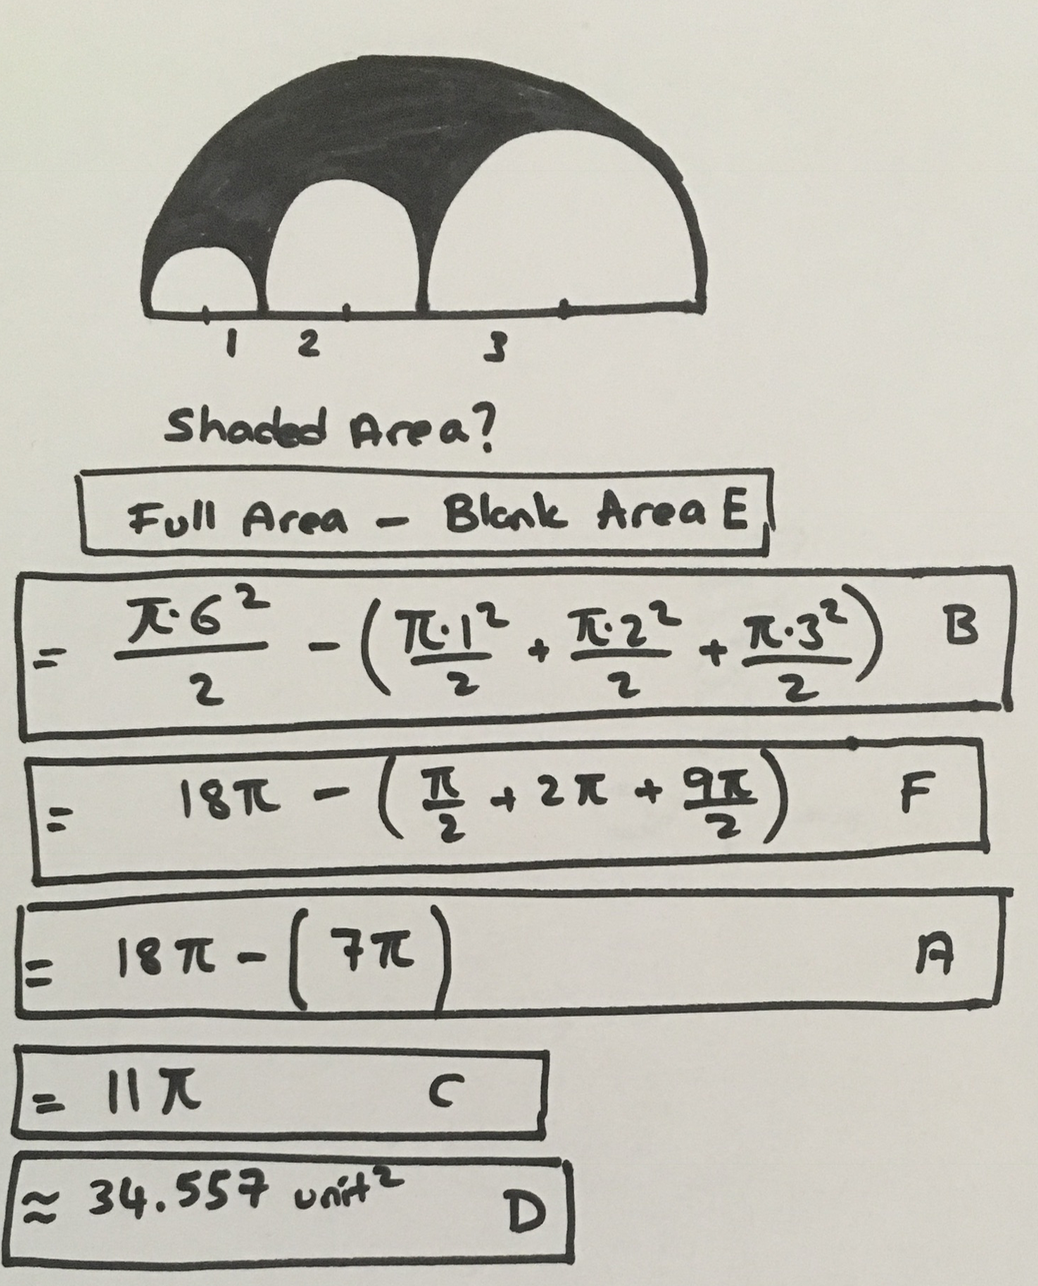 1 2 3
Shaded Area?
Full Area - Blank Area E
= π·6²/2 - (π·1²/2 + π·2²/2 + π·3²/2) B
= 18π - (π/2 + 2π + 9π/2) F
= 18π - (7π) A
= 11π C
≈ 34.557 unit² D